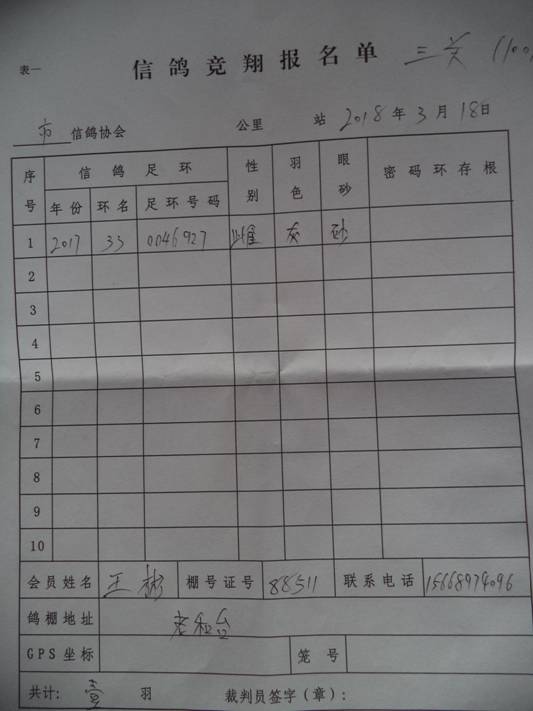 表一 信鸽竞翔报名单 三关 (100
市 信鸽协会 公里 站 2018年3月18日
序号 信鸽足环 性别 羽色 眼砂 密码环存根
年份 环名 足环号码
1 2017 33 0046927 雌 灰 砂
2
3
4
5
6
7
8
9
10
会员姓名 王彬 棚号证号 88511 联系电话 15668974096
鸽棚地址 老和台
GPS坐标 笼号
共计: 壹 羽 裁判员签字(章):